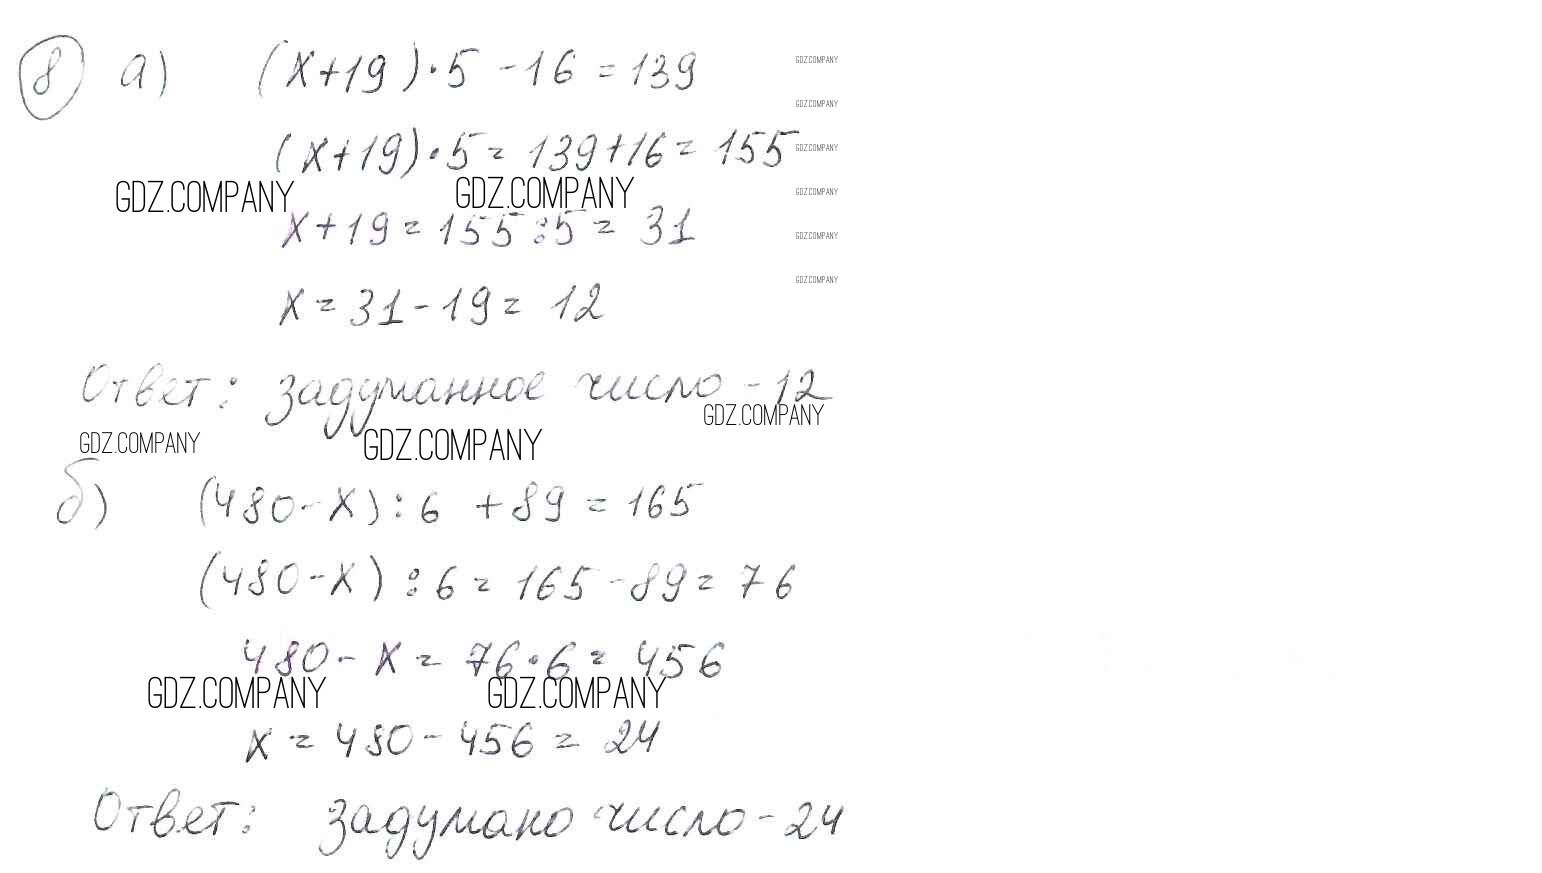 8 а) (x+19)·5 -16 = 139
GDZ.COMPANY
GDZ.COMPANY
(x+19)·5 = 139+16 = 155
GDZ.COMPANY
GDZ.COMPANY GDZ.COMPANY
GDZ.COMPANY
x+19 = 155:5 = 31
GDZ.COMPANY
GDZ.COMPANY
x = 31-19 = 12
Ответ: задуманное число - 12
GDZ.COMPANY
GDZ.COMPANY GDZ.COMPANY
б) (480-x):6 +89 = 165
(480-x):6 = 165-89 = 76
480-x = 76·6 = 456
GDZ.COMPANY GDZ.COMPANY
x = 480-456 = 24
Ответ: задумано число - 24